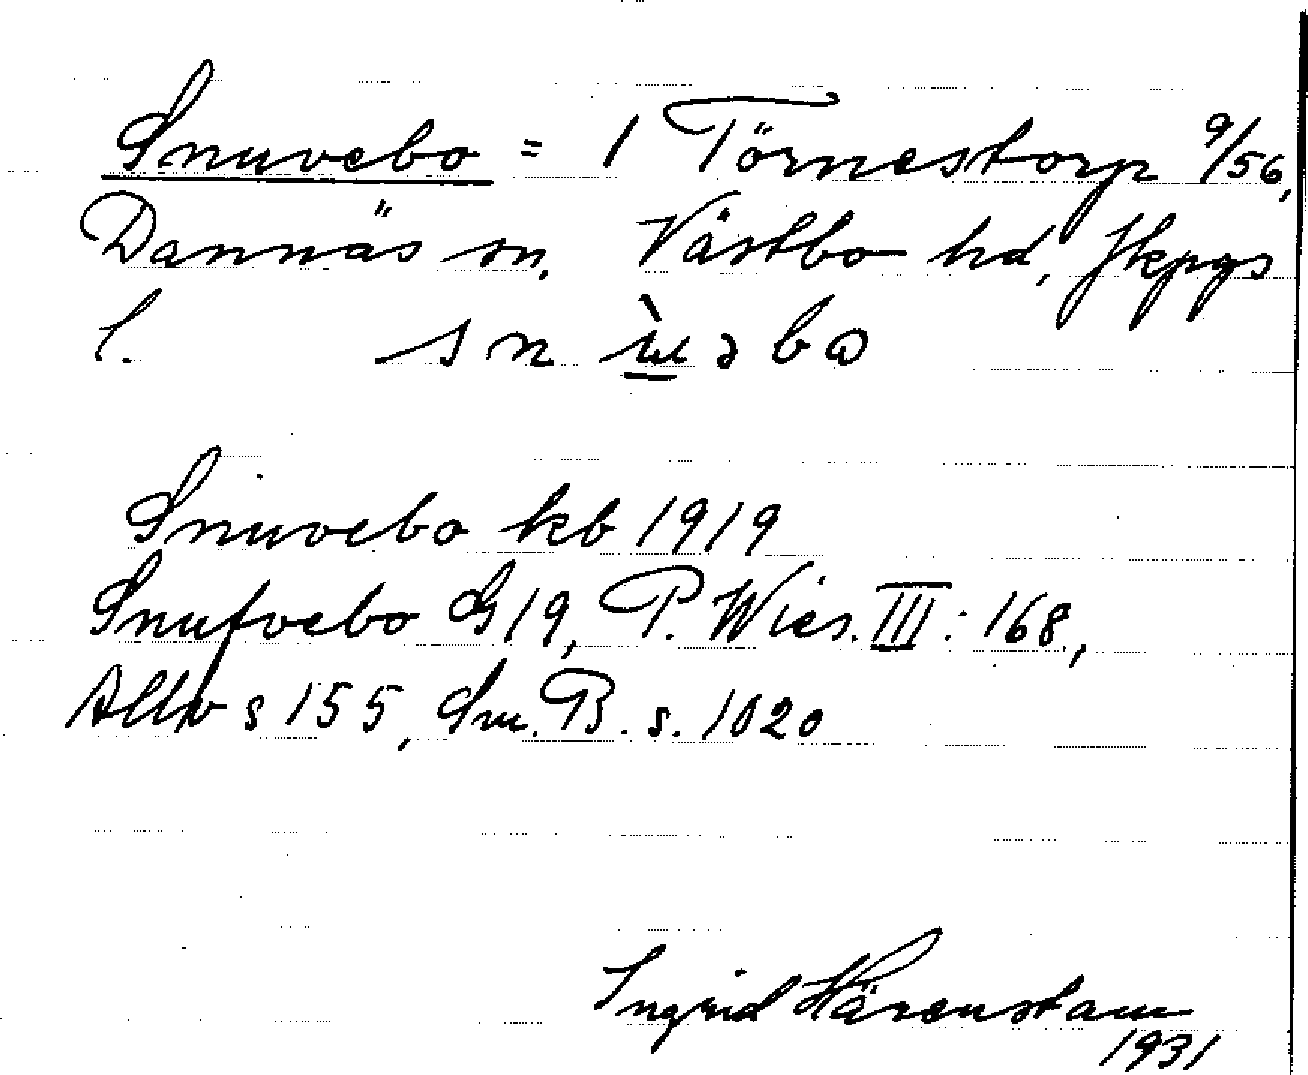 Snuvebo = 1 Törnestorp 9/56,
Dannäs sn, Västbo hd, Jkpgs
l. sn
Snuvebo kb 1919
Snufvebo G19, P. Wies. III: 168,
Allvs 155, Sm. B. s. 1020
Ingrid Härenstam
1931